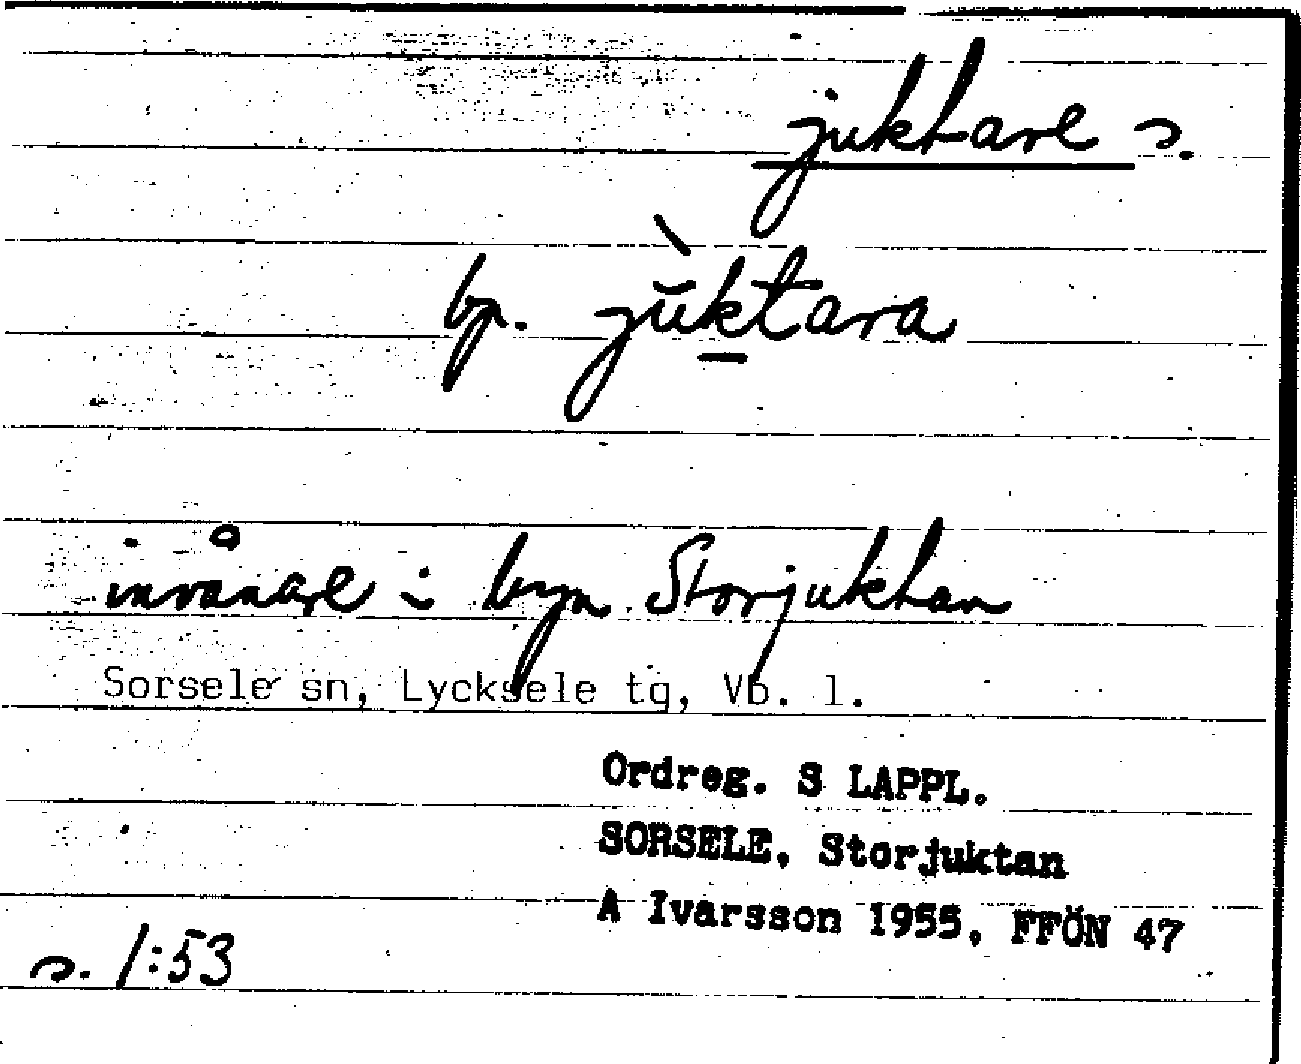 juktare s.
bp. jŭ̀k̲tara
invånare i byn Storjuktan
Sorsele sn, Lycksele tg, Vb. l.
Ordreg. S LAPPL.
SORSELE, Storjuktan
A Ivarsson 1955, FFÖN 47
s. 1:53